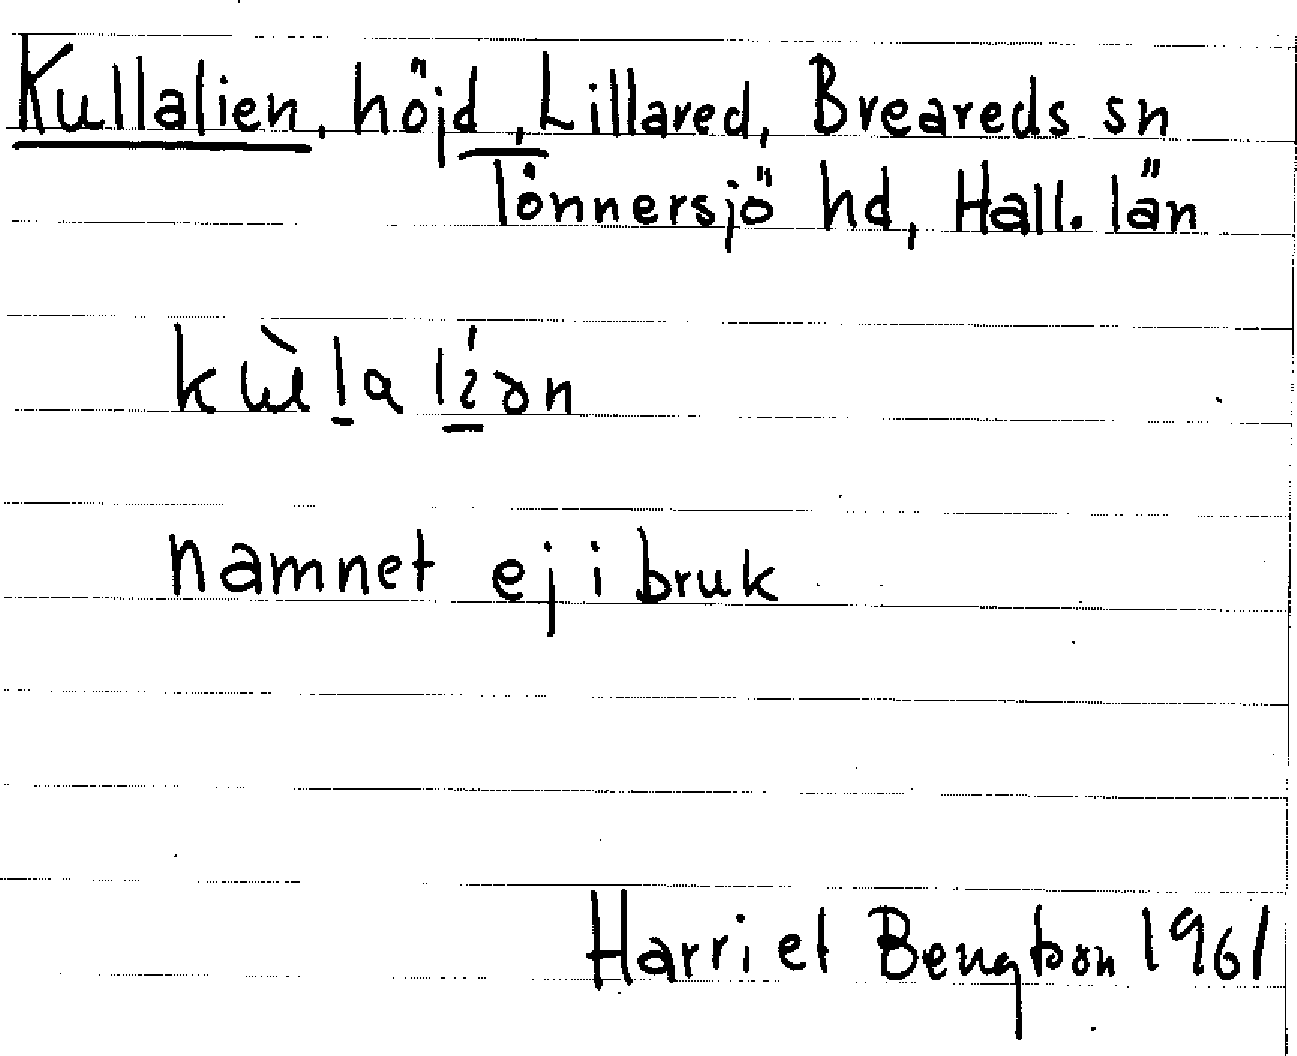 Kullalien, höjd, Lillared, Breareds sn
Tönnersjö hd, Hall. län
namnet ej i bruk
Harriet Bengtson 1961